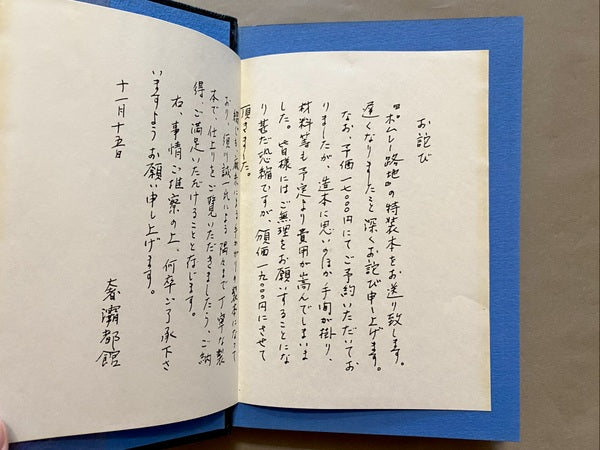 お詫び
『ポムレー路地』の特装本をお送り致します。
遅くなりましたこと深くお詫び申し上げます。
なお、予価一七〇〇〇円にてご予約いただいてお
りましたが、造本に思いのほか手間が掛り、
材料等も予定より費用が嵩んでしまいま
した。皆様にはご無理をお願いすることにな
り甚だ恐縮ですが、頒価一九〇〇〇円にさせて
頂きました。
による手かがりの製本になって
おり、須川誠一氏による隅々まで丁寧な製
本で、仕上りをご覧いただきましたら、ご納
得、ご満足いただけることと存じます。
右、事情ご推察の上、何卒ご了承下さ
いますようお願い申し上げます。
十一月十五日
奢灞都館